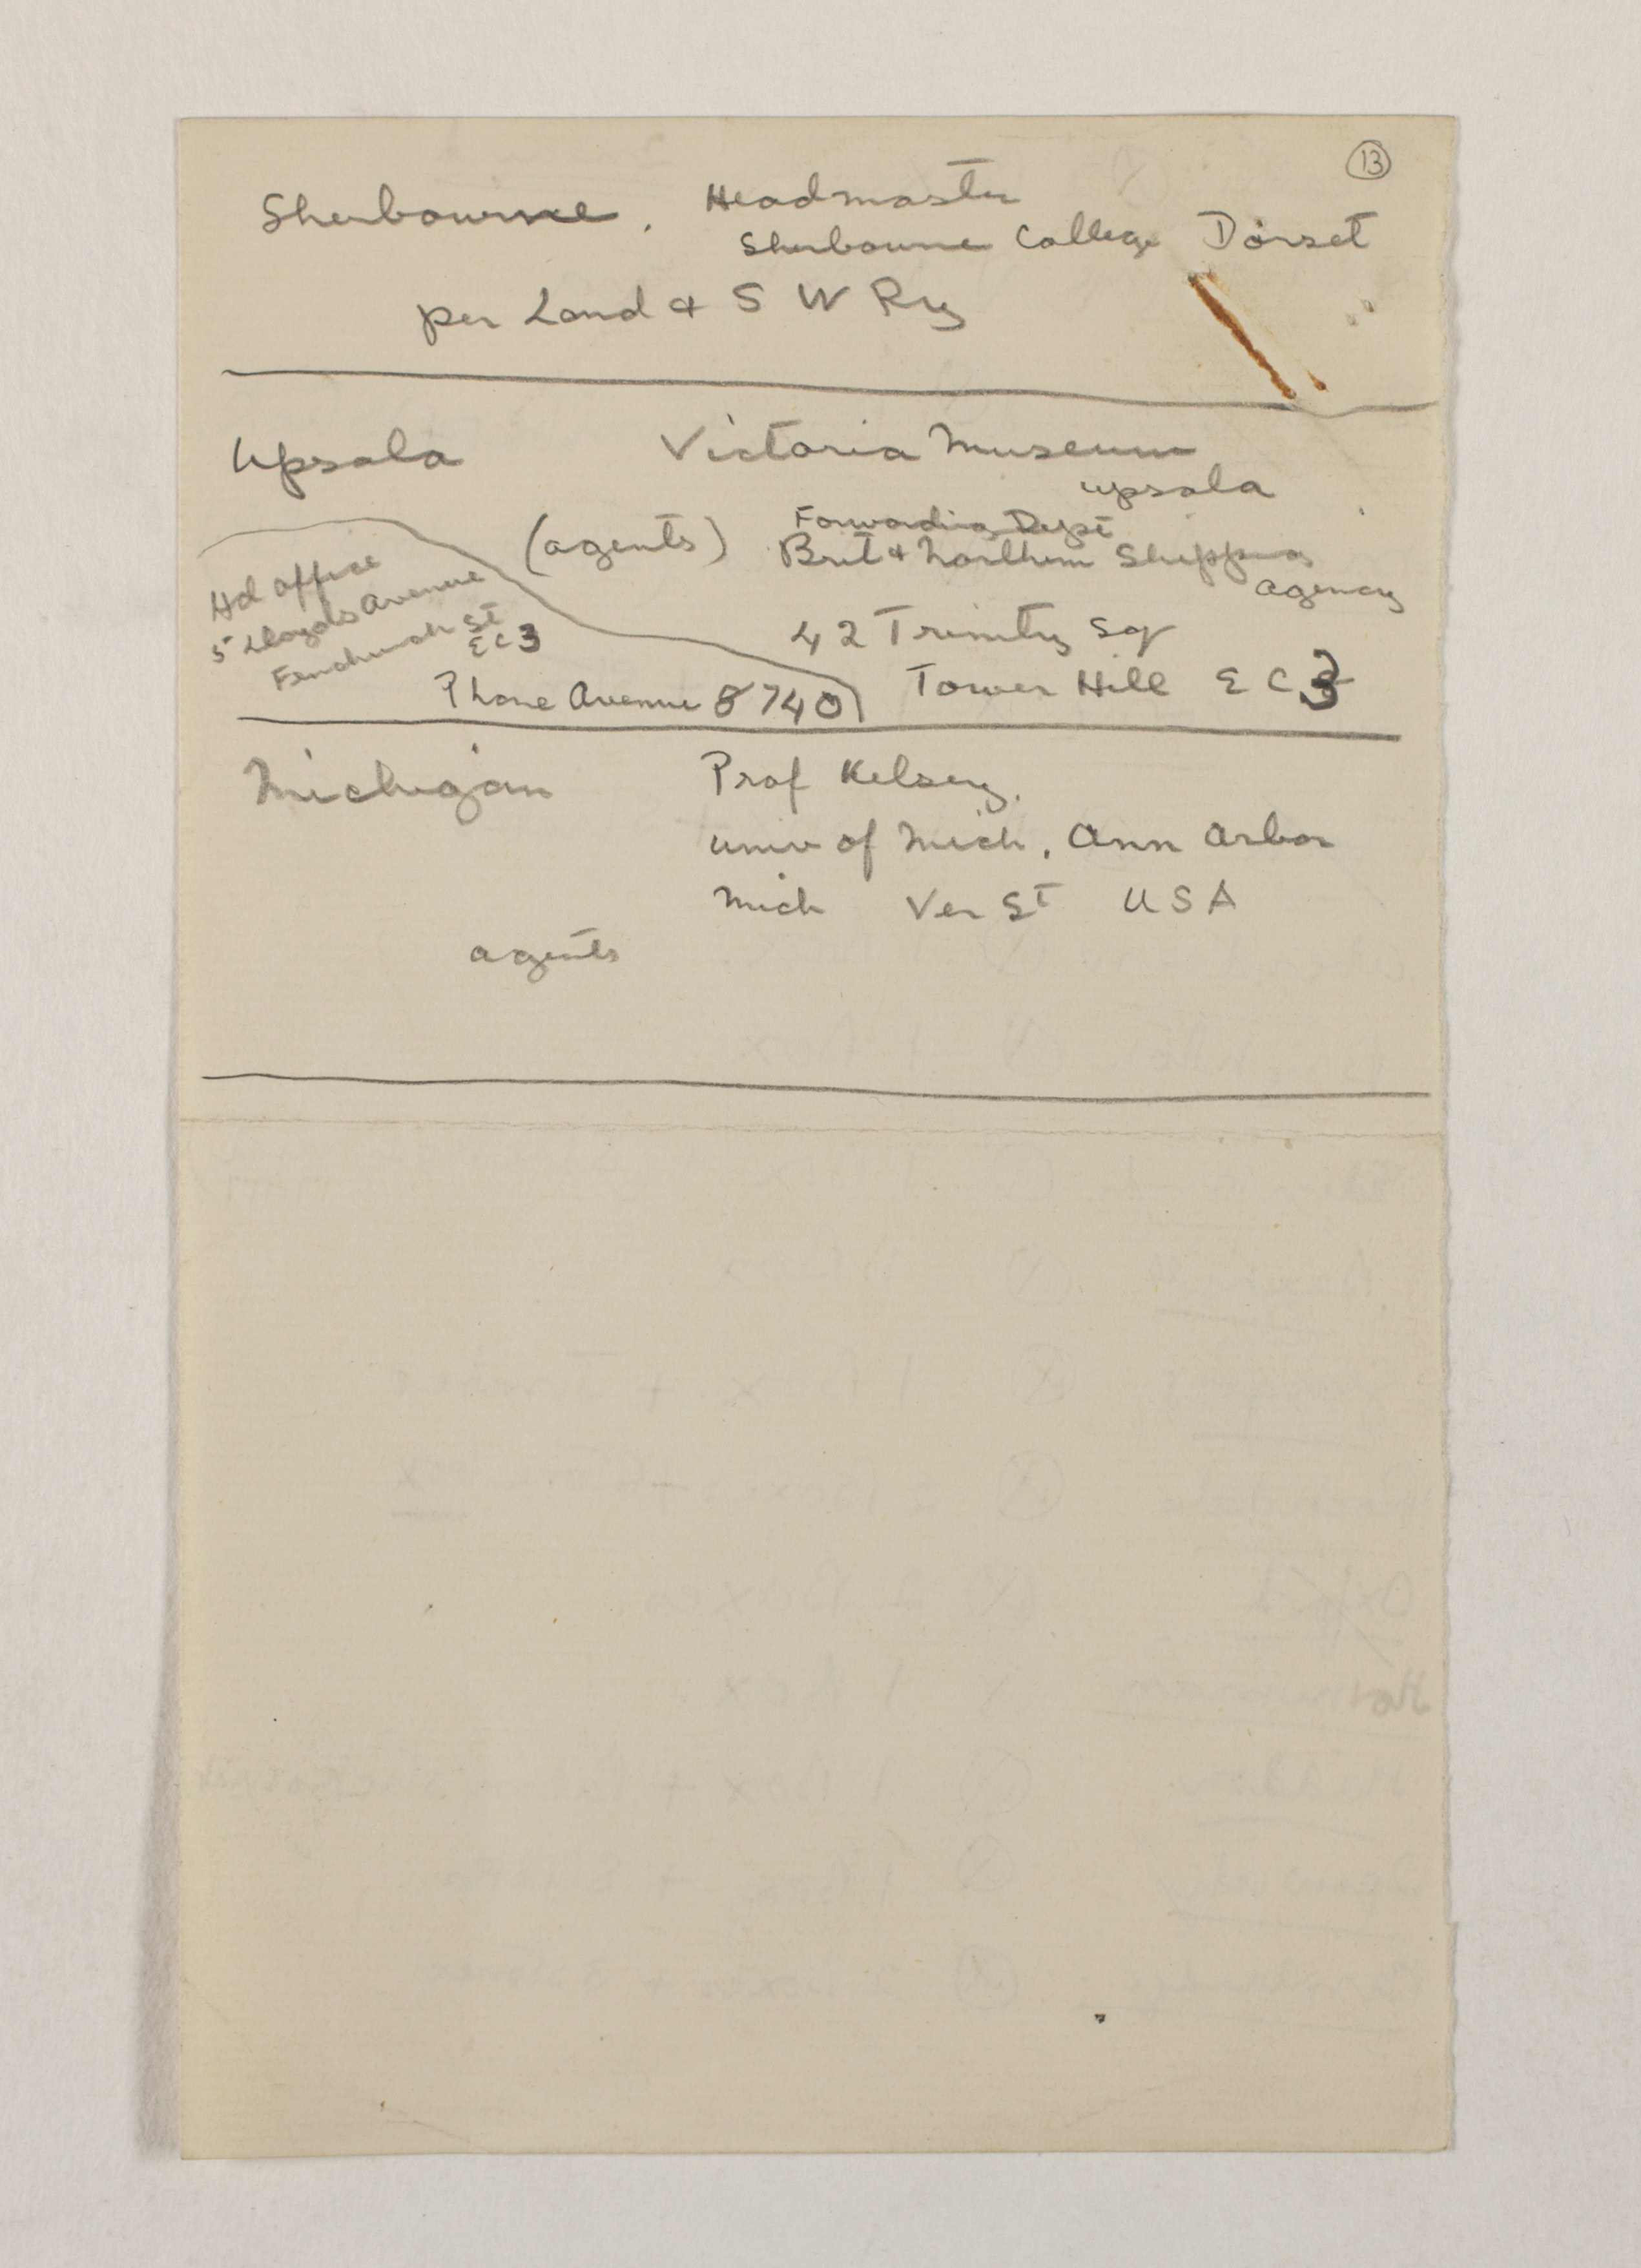 13
Sherbourne, Headmaster
Sherbourne College Dorset
per Lond & S W Ry
Upsala Victoria Museum
Upsala
(agents) Forwarding Dept
Brit & Northern Shipping
Agency
42 Trinity Sq
Tower Hill E C 3
Hd office
5 Lloyds Avenue
Fenchurch St
E C 3
Phone Avenue 8740
Michigan Prof Kelsey.
Univ of Mich, Ann Arbor
Mich Ver St U S A
agents